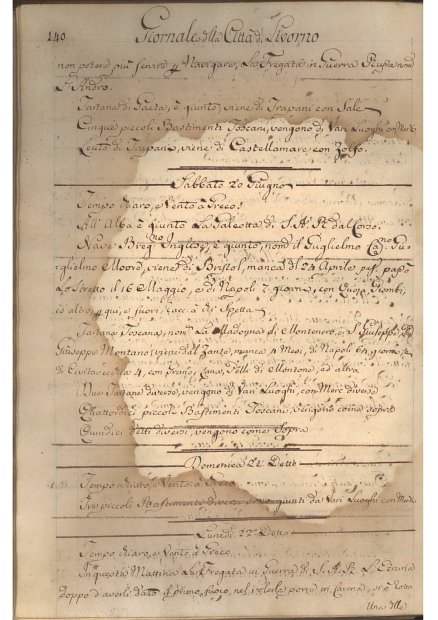 140 Giornale della Città di Livorno
non potere più servire p Navigare, La Fregata in Guerra Russa nom
S. Andro.
Tartana di Gaeta, è giunto, viene di Trapani con Sale
Cinque piccoli Bastimenti Toscani, vengono di Vari Luoghi con Merc
Leuto di Trapani, viene di Castellamare con Zolfo.
Sabbato 20 Giugno
Tempo Chiaro, e Vento à Greco.
All' Alba è giunto La Galeotta di S. A. R. dal Corso.
Nave Inglese, è giunto, nom il Guglielmo Gu-
glielmo Moord, viene di Bristol, manca dl 24 Aprile passò
Lo Stretto il 16 Maggio, ed Napoli 7 giorni, con Piombi,
ed altro p qui, e fuori, Racc à Spetta
Tartana Toscana, nom La Madonna di Montenero, e S. Giuseppe,
Giuseppe Montano, viene dal Zante, manca 4 Mesi, di Napoli giorni,
di Civitavecchia 4, con Grano, Lana, Pelli di Montone, ed altro.
Due Tartane diverse, vengono di Vari Luoghi, con Merc diverse
Quattordici piccoli Bastimenti Toscani, vengono come sopra
Quindici detti diversi, vengono come Sopra
Domenica 21 Detto
Tempo Chiaro, e Vento à Greco
Tre piccoli Bastimenti diversi, sono giunti da Vari Luoghi con Merc
Lunedì 22 Detto
Tempo Chiaro, e Vento, à Greco
In questa Mattina La Fregata in Guerra di S. A. R. L'Etruria
doppo d'averle dato il primo fuoco, nel volerla porre in Carena, si è rotto
Una delle